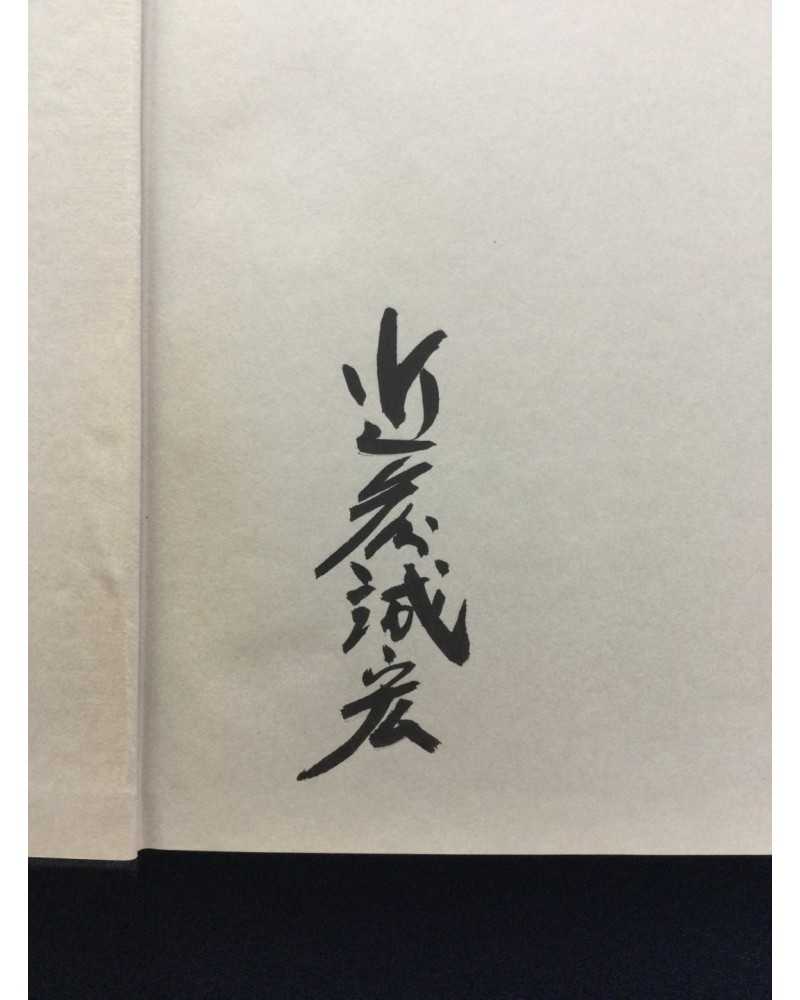 近藤誠宏